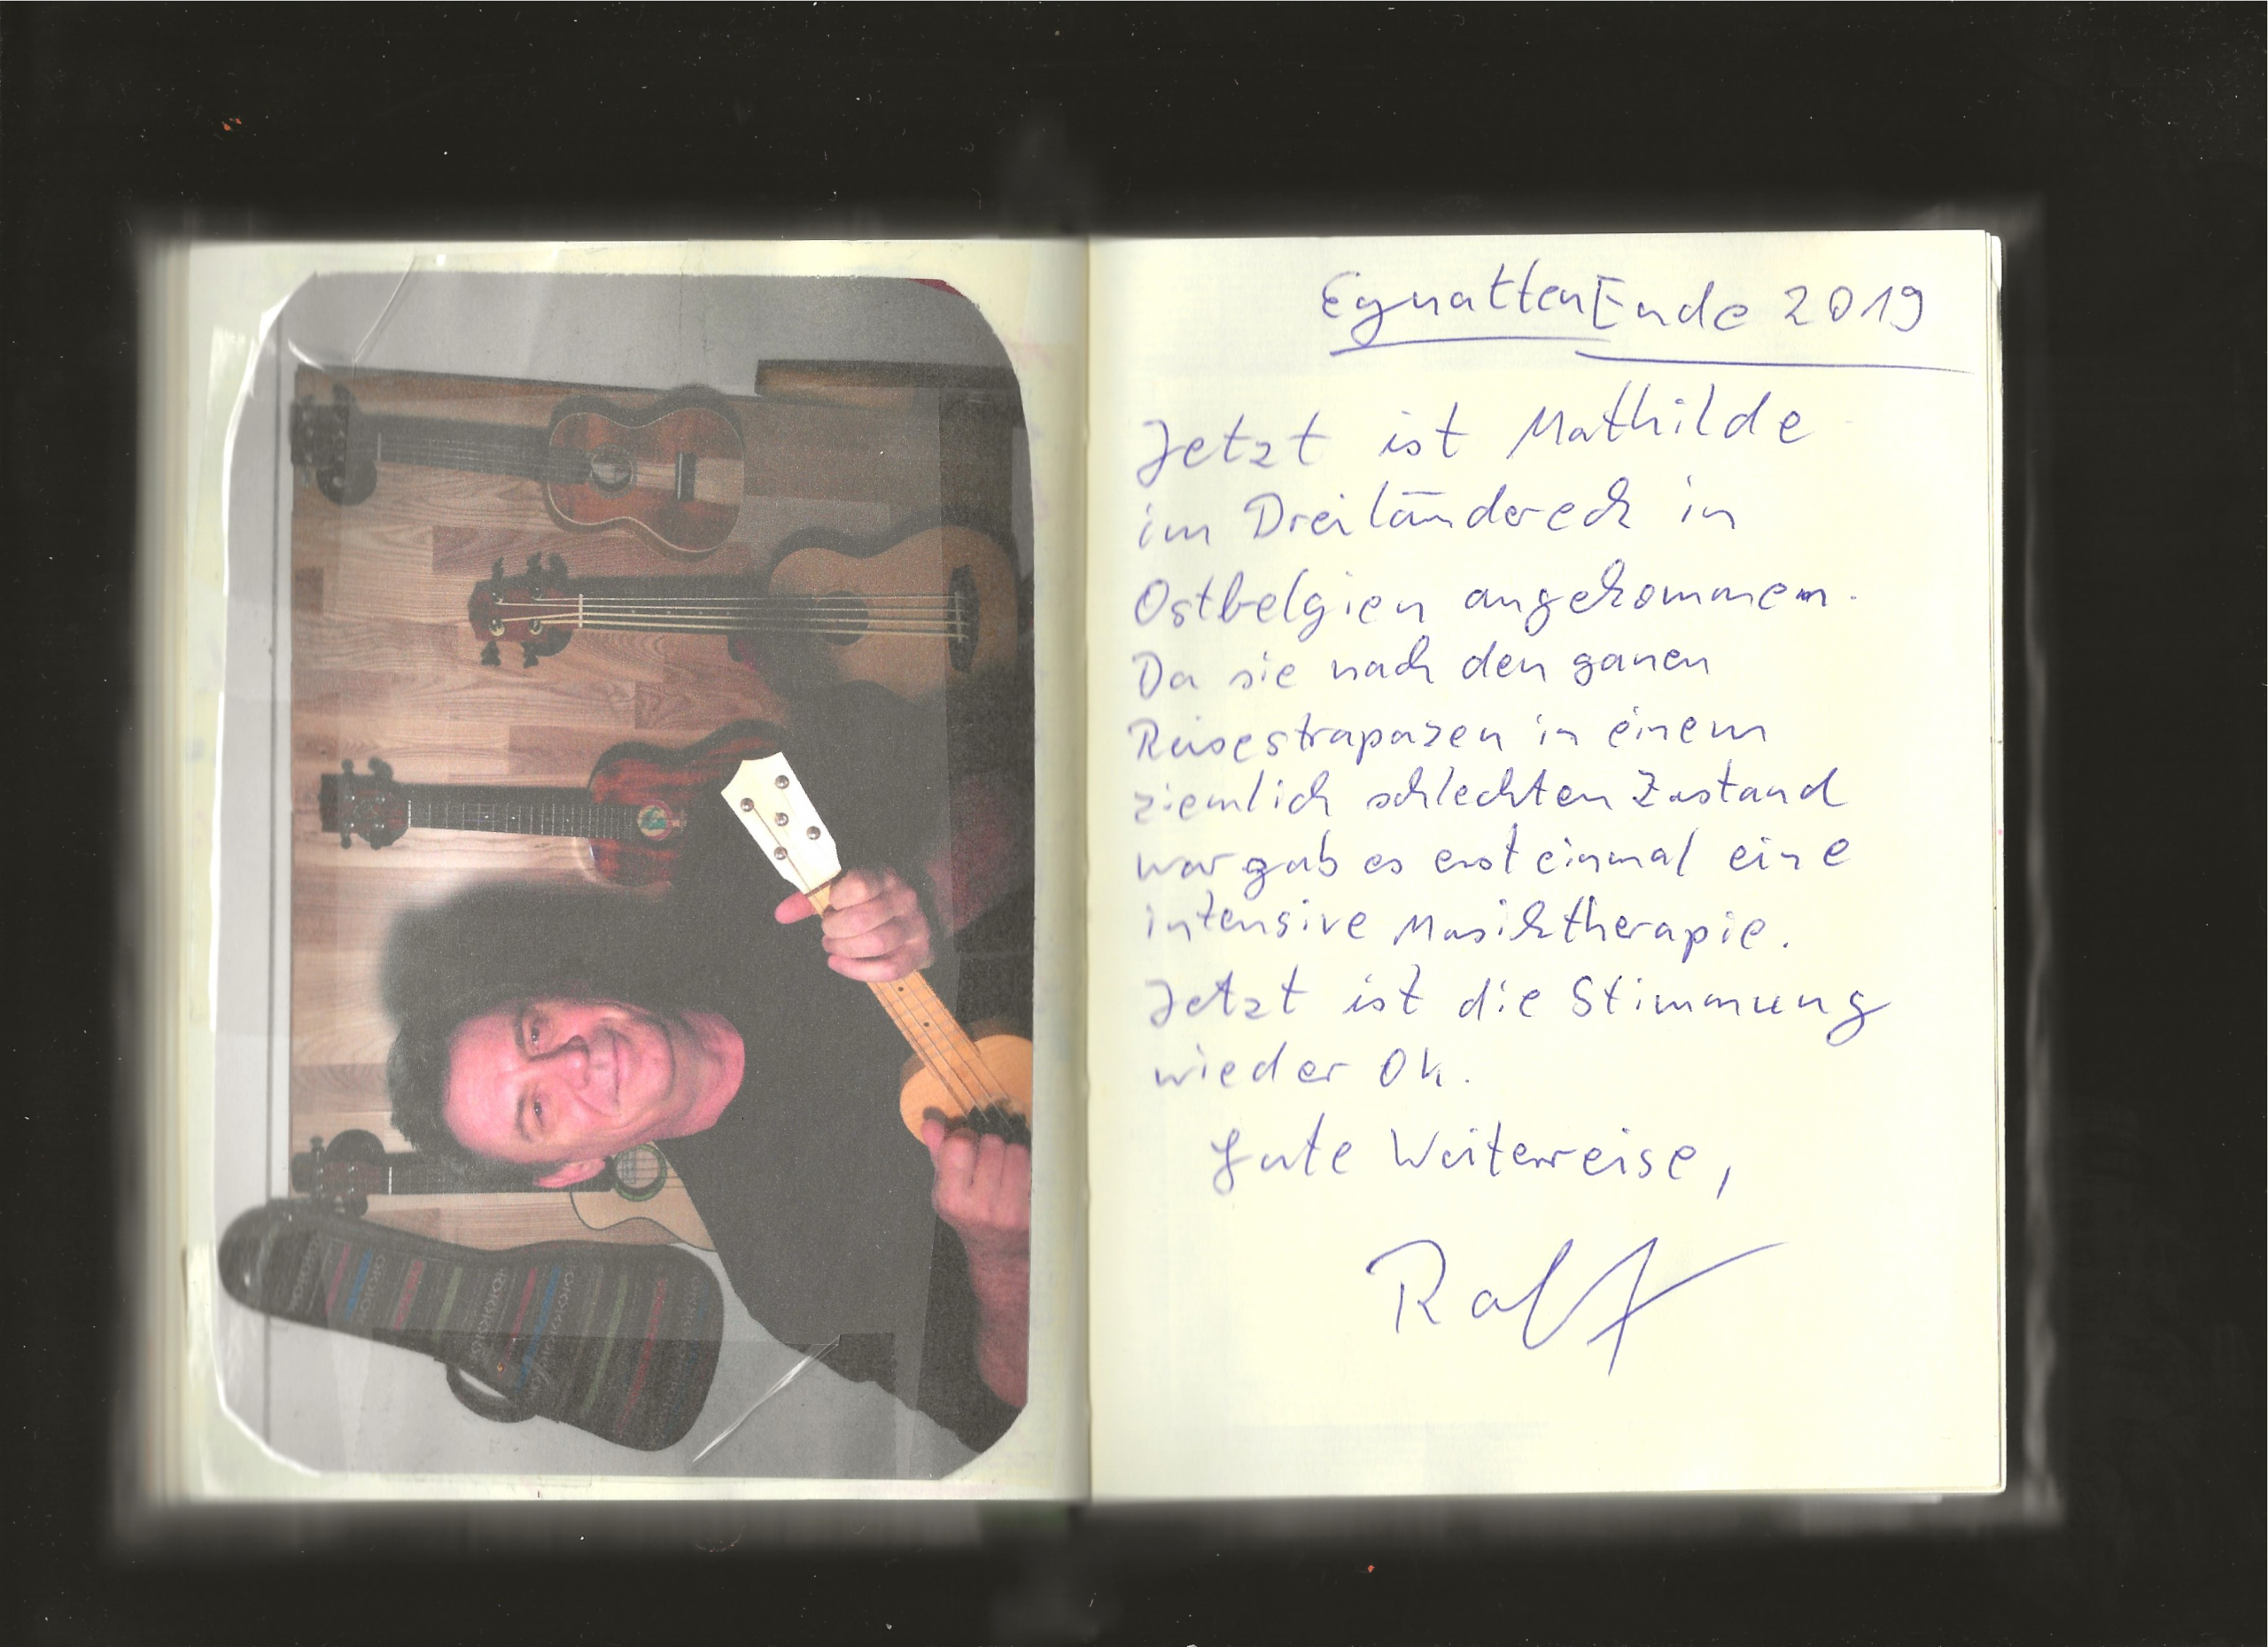 Eynatten Ende 2019
Jetzt ist Mathilde
im Dreiländereck in
Ostbelgien angekommen.
Da sie nach den ganen
Reisestrapazen in einem
ziemlich schlechten Zustand
war gab es erst einmal eine
intensive Musiktherapie.
Jetzt ist die Stimmung
wieder Ok.
Gute Weiterreise,
Ralf